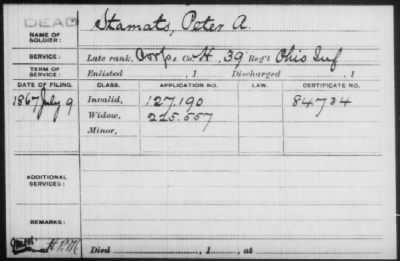 DEAD
NAME OF SOLDIER: Stamats, Peter A.
SERVICE: Late rank, Corp. Co. H, 39 Reg't Ohio Inf
TERM OF SERVICE: Enlisted , 1 Discharged , 1
DATE OF FILING. CLASS. APPLICATION NO. LAW. CERTIFICATE NO.
1867 July 9 Invalid, 127.190 84734
Widow, 225.557
Minor,
ADDITIONAL SERVICES:
REMARKS:
Died , 1 , at